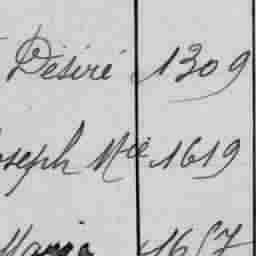 Désiré 1309
Joseph Mie 1619
Maria 1657